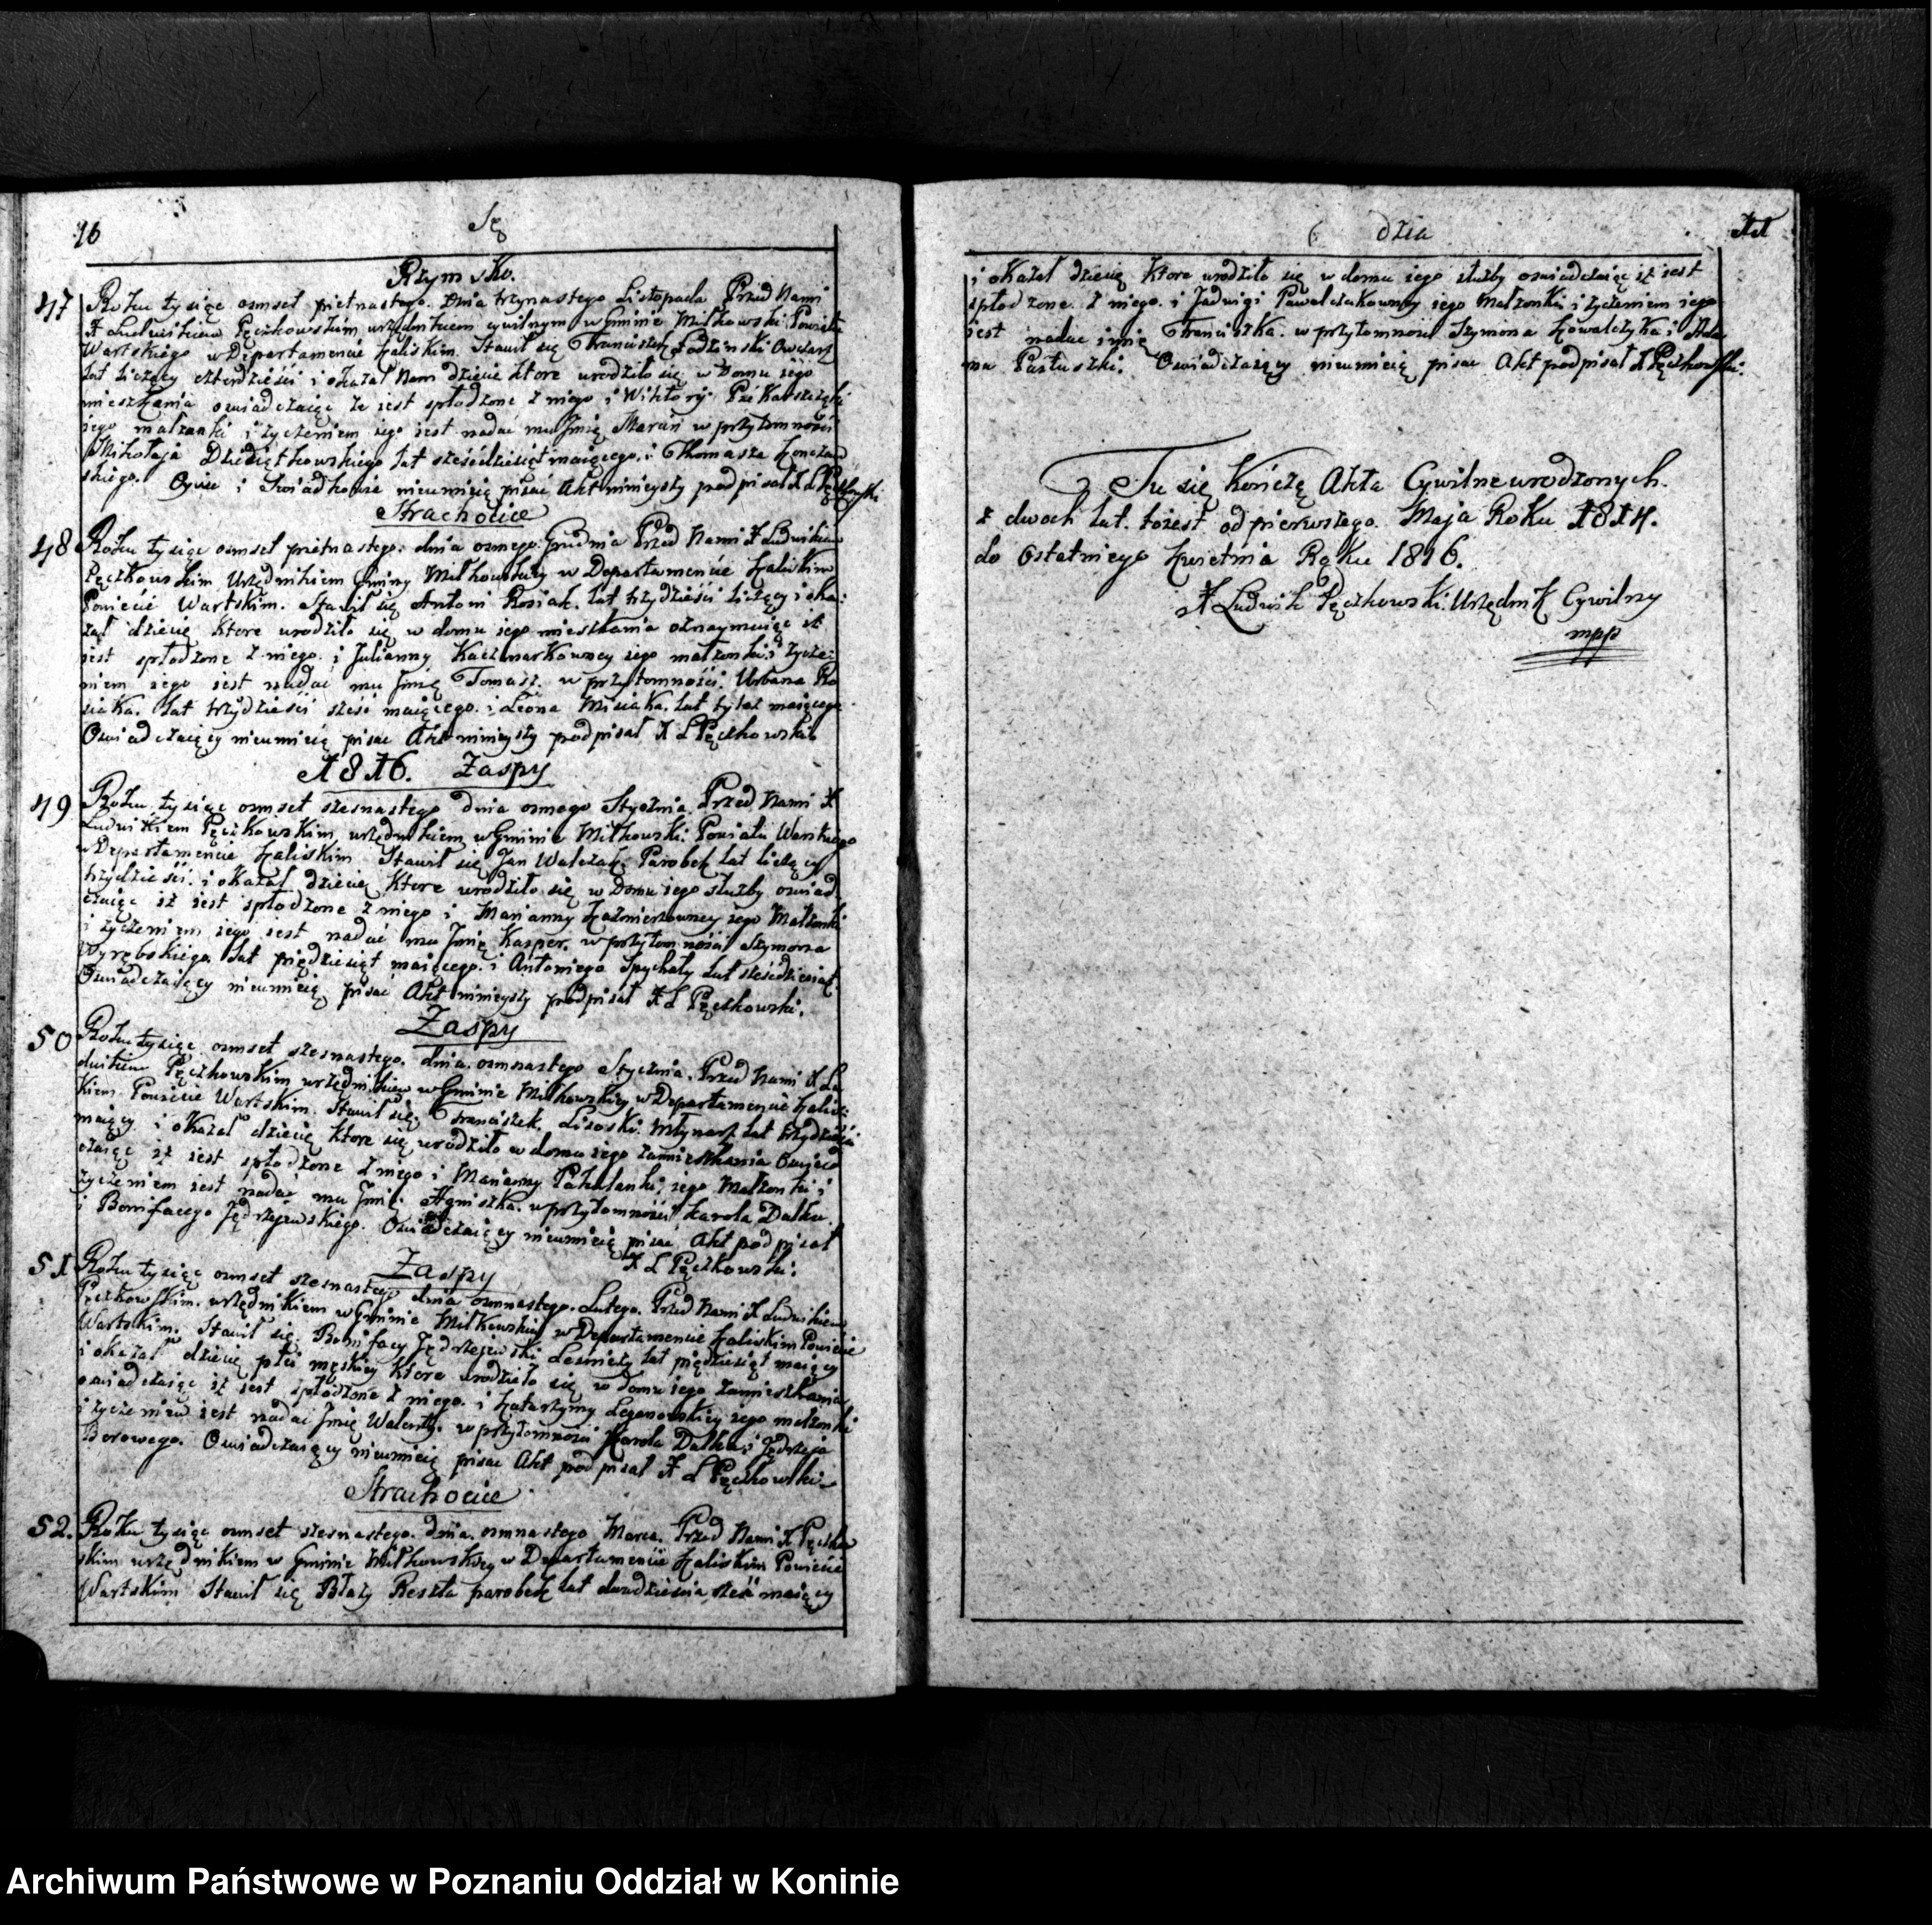 16
Sę
Rzymsko.
47 Roku tysiąc osmset pietnastego. dnia trzynastego Listopada Przed Nami
X Ludwikiem Pęczkowskim urzędnikiem cywilnym w Gminie Miłkowski Powiatu
Wartskiego w Departamencie Kaliskim. Stawił się Franciszek Owczarz
lat liczący czterdzieści i okazał Nam dziecie ktore urodziło się w Domu iego
mieszkania oswiadczaiąc że iest spłodzone z niego i Wiktoryi
iego małżonki i życzeniem iego iest nadać mu Jmię Marcin w przytomności
Mikołaja Dziedziątkowskiego lat sześcdziesiąt maiącego. i Thomasza
skiego. Oyciec i Swiadkowie nieumieią pisać Akt ninieyszy podpisał X L Pęczkowski
Strachocice
48 Roku tysiąc osmset pietnastego. dnia osmego Grudnia Przed Nami X Ludwikiem
Pęczkowskim Urzędnikiem Gminy Miłkowskiey w Departamencie Kaliskim
Powiecie Wartskim. Stawił się Antoni Rosiak. lat trzydzieści liczący i oka:
zał dziecię ktore urodziło się w domu iego mieszkania oznaymuiąc iż
iest spłodzone z niego. i Julianny Kaczmarkowney iego małżonki. i życze:
niem iego iest nadać mu Jmię Tomasz. w przytomności. Urbana Ro
siaka. lat trzydzieści sześć maiącego. i Leona Misiaka. lat tyleż maiącego.
Oswiadczaiący nieumieią pisac Akt ninieyszy podpisał X L Pęczkowski
1816. Zaspy
49 Roku tysiąc osmset szesnastego dnia osmego Stycznia. Przed Nami X
Ludwikiem Pęczkowskim urzędnikiem w Gminie Miłkowski. Powiatu Wartskiego
w Departamencie Kaliskim Stawił się Jan Walczak. Parobek lat liczący
trzydzieści. i okazał dziecię ktore urodziło się w Domu iego służby oswiad
czaiąc iż iest spłodzone z niego i Marianny Kaźmierzowney iego Małżonki
i życzeniem iego iest nadać mu Jmię Kasper. w przytomności Szymona
Wyrębskiego. lat piędziesiąt maiącego. i Antoniego Spychały lat sześcdziesiąt.
Oswiadczaiący nieumieią pisac Akt ninieyszy podpisał X L Pęczkowski.
Zaspy
50 Roku tysiąc osmset szesnastego. dnia osmnastego Stycznia. Przed Nami X Lu
dwikiem Pęczkowskim urzędnikiem w Gminie Miłkowskiey w Departamencie Kalis:
kiem Powiecie Wartskim. Stawił się Franciszek. Lisoski. Młynarz lat trzydzieści
maiący i okazał dziecię ktore się urodziło w domu iego zamieszkania Oswiad
czaiąc iż iest spłodzone z niego i Marianny iego Małżonki i
życzeniem iest nadać mu Jmię. Agniszka. w przytomności Karola Dulka
i Bonifacego Jędrzejewskiego. Oswiadczaiący nieumieią pisac Akt podpisał
X L Pęczkowski.
Zaspy
51 Roku tysiąc osmset szesnastego dnia osmnastego. Lutego. Przed Nami X Ludwikiem
Pęczkowskim. urzędnikiem w Gminie Miłkowskiey w Departamencie Kaliskim Powiecie
Wartskim. Stawił się. Bonifacy Jędrzejewski Leśniczy lat pięćdziesiąt maiący
i okazał dziecię płci męskiey ktore urodziło się w domu iego zamieszkania
oswiadczaiąc iż iest spłodzone z niego. i Katarzyny iego małżonki
i życzeniem iest nadać Jmię Walenty. w przytomności Karola Dulka. i Jędrzeja
Borowego. Oswiadczaiący nieumieią pisac Akt podpisał X L Pęczkowski
Strachocice
52. Roku tysiąc osmset szesnastego. dnia. osmnastego Marca. Przed Nami X Pęczkow
skim urzędnikiem w Gminie Miłkowskiey w Departamencie Kaliskim Powiecie
Wartskim Stawił się Błaży Reszta parobek lat dwadzieścia sześć maiący
dzia
i okazał dziecię ktore urodziło się w domu iego służby oswiadczaiąc iż iest
spłodzone z niego. i Jadwigi Pawelczakowney iego Małżonki i życzeniem iego
iest nadac imię Franciszka. w przytomności Szymona Kowalczyka i Ada
ma Pastuszki. Oswiadczaiący nieumieią pisac Akt podpisał X L Pęczkowski.
Tu się Kończę Akta Cywilne urodzonych.
z dwoch lat. to iest od pierwszego. Maja Roku 1814.
do Ostatniego Kwietnia Roku 1816.
X Ludwik Pęczkowski. Urzędnik Cywilny
mpp
Archiwum Państwowe w Poznaniu Oddział w Koninie